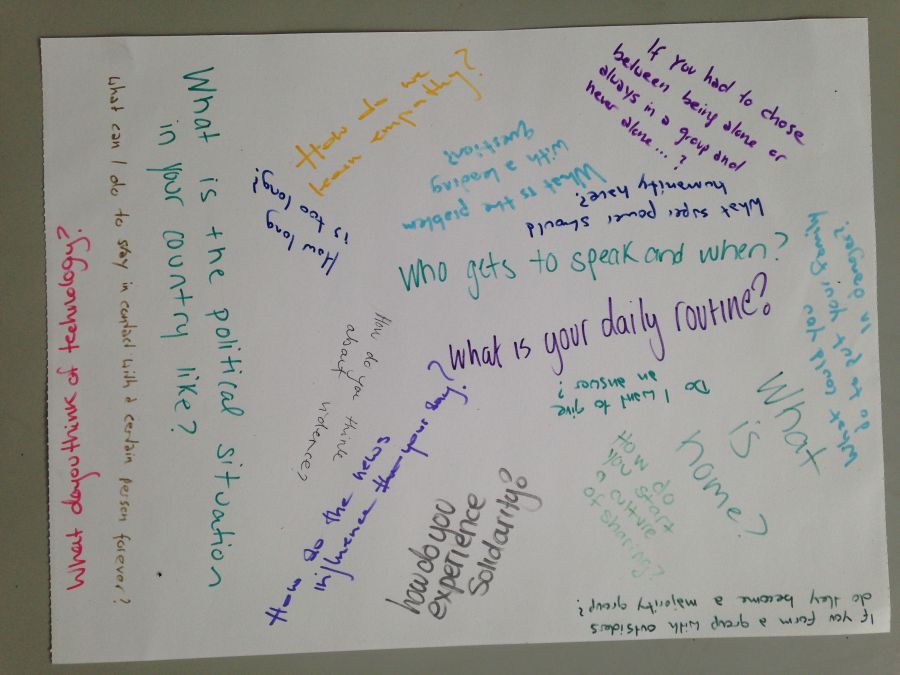 What do you think of technology?
what can I do to stay in contact with a certain person forever?
What is the political situation
in your country like?
How do we
learn empathy?
How long
is too long?
If you had to chose
between being alone or
always in a group and
never alone...?
What is the problem
with a leading
question?
What super power should
humanity have?
Who gets to speak and when?
What is your daily routine?
What could you
do to put your family
in danger?
How do you think
about violence?
Do I want to give
an answer?
How do the news
influence your day?
What
is
home?
How do
you start
a culture
of sharing?
how do you
experience
Solidarity?
If you form a group with outsiders
do they become a majority group?